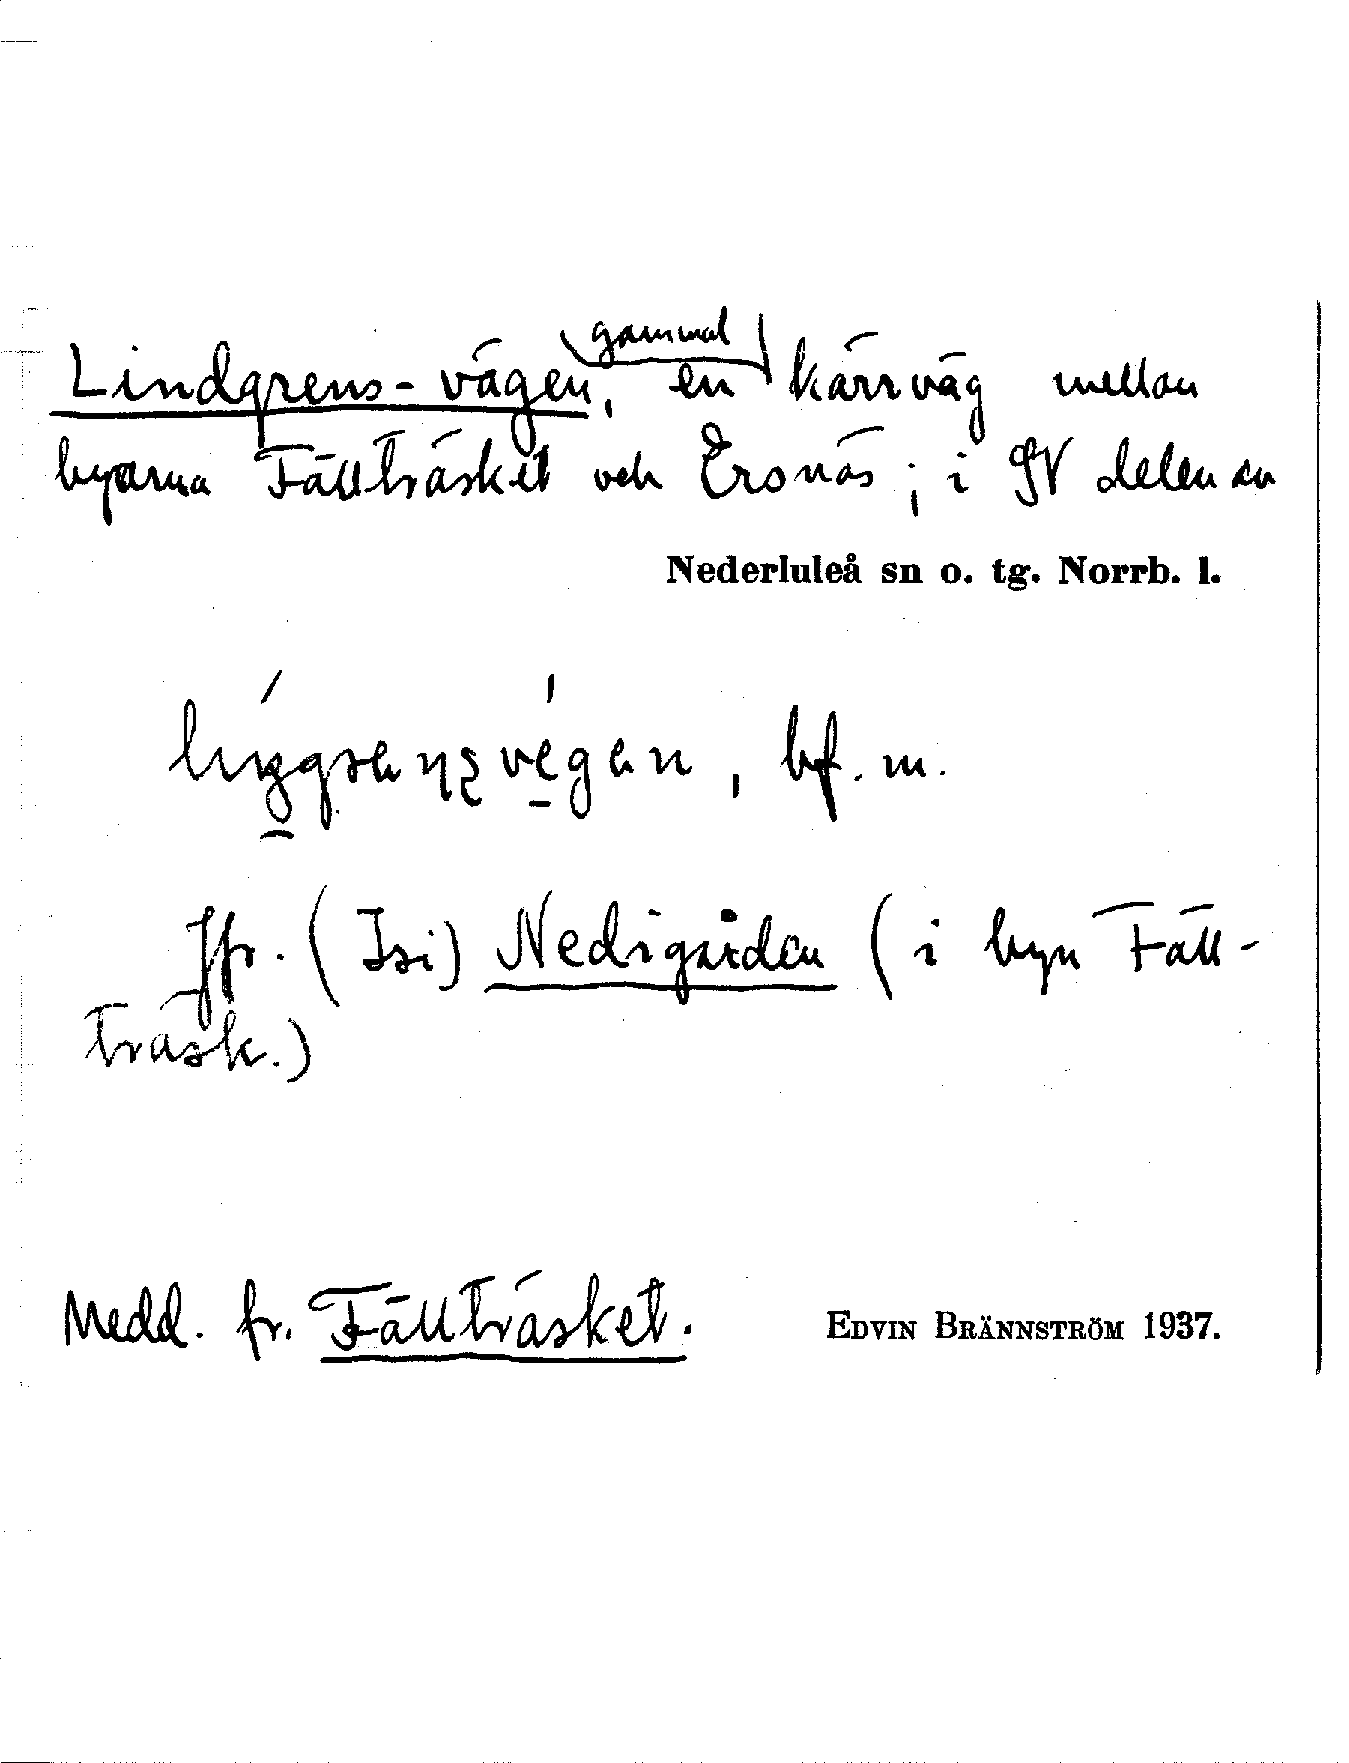 Lindgrens-vägen, en gammal kärrväg mellan
byarna Fällträsket och Ersnäs; i SV delen av
Nederluleå sn o. tg. Norrb. l.
, bf. m.
Jfr. (Isi) Nedigården (i byn Fäll-
träsk.)
Medd. fr. Fällträsket.
EDVIN BRÄNNSTRÖM 1937.